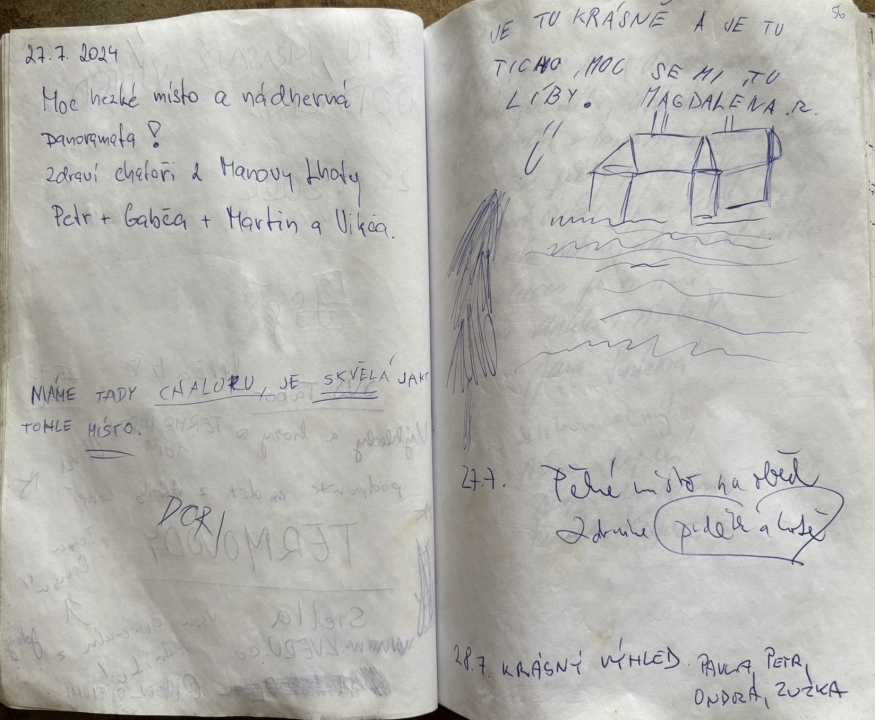 27.7. 2024
Moc hezké místo a nádherná
panoramata!
Zdraví chataři z Manovy Lhoty
Petr + Gabča + Martin a Vikča.
MÁME TADY CHALORU, JE SKVĚLÁ JAKO
TOHLE MÍSTO.
DORI
56
JE TU KRÁSNĚ A JE TU
TICHO, MOC SE MI TU
LÍBY. MAGDALENA.R.
27.7. Pěkné místo na oběd
28.7. KRÁSNÝ VÝHLED PAVLA, PETR,
ONDRA, ZUZKA